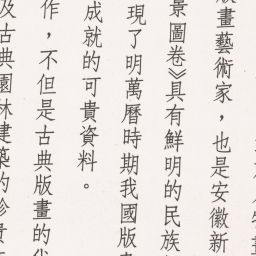 版畫藝術家，也是安徽新
景圖卷》具有鮮明的民族
現了明萬曆時期我國版
成就的可貴資料。
作，不但是古典版畫的
及古典園林建築的珍貴